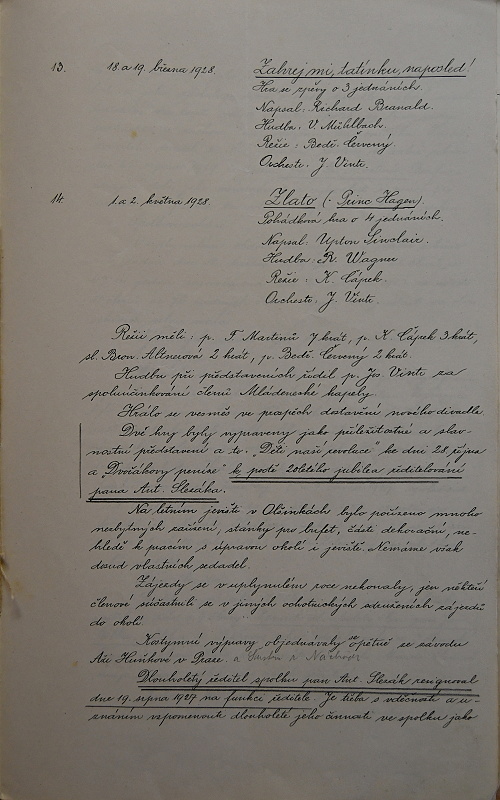 13. 18. a 19. března 1928. Zahrej mi, tatínku, naposled!
Hra se zpěvy o 3 jednáních.
Napsal: Richard Branald.
Hudba: V. Mühlbach.
Režie: Bedř. Červený.
Orchestr: J. Vintr.
14. 1. a 2. května 1928 Zlato (: Princ Hagen).
Pohádková hra o 4 jednáních.
Napsal: Upton Sinclair.
Hudba: R. Wagner
Režie: K. Cápek.
Orchestr: J. Vintr.
Režii měli: p. F. Martinů 7 krát, p. K. Cápek 3 krát,
sl. Bron. Altnerová 2 krát, p. Bedř. Červený 2 krát.
Hudbu při představeních řídil p. Jos. Vintr za
spoluúčinkování členů Mládenecké kapely.
Hrálo se vesměs ve prospěch dostavění nového divadla.
Dvě hry byly vypraveny jako příležitostné a slav-
nostní představení a to: "Děti naší revoluce" ke dni 28. října
a "Dvořákovy peníze" k poctě 20letého jubilea ředitelování
pana Ant. Slezáka.
Na letním jevišti v Olšinkách bylo pořízeno mnoho
nezbytných zařízení, stánky pro bufet, části dekorační, ne-
hledě k pracím s úpravou okolí i jeviště. Nemáme však
dosud vlastních sedadel.
Zájezdy se v uplynulém roce nekonaly, jen někteří
členové súčastnili se v jiných ochotnických sdruženích zájezdů
do okolí.
Kostymní výpravy objednávaly se opětně se závodu
Hunkové v Praze. a z Náchoda
Dlouholetý ředitel spolku pan Ant. Slezák resignoval
dne 19. srpna 1927 na funkci ředitele. Je třeba s vděčností a u-
znáním vzpomenouti dlouholeté jeho činnosti ve spolku jako